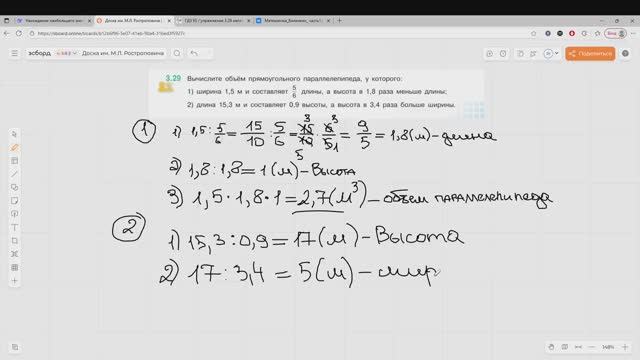 Нахождение наибольшего знач
Доска им. М.Л. Ростроповича
ГДЗ 10 / упражнение 3.29 мате
Математика_Виленкин_ часть
https://esboard.online
эсборд
Доска им. М.Л. Ростроповича
Поделиться
3.29 Вычислите объём прямоугольного параллелепипеда, у которого:
1) ширина 1,5 м и составляет 5/6 длины, а высота в 1,8 раза меньше длины;
2) длина 15,3 м и составляет 0,9 высоты, а высота в 3,4 раза больше ширины.
1 1) 1,5 : 5/6 = 15/10 : 5/6 = 15/10 · 6/5 = 9/5 = 1,8(м) - длина
2) 1,8 : 1,8 = 1(м) - Высота
3) 1,5 · 1,8 · 1 = 2,7(м³) - объем параллелепипеда
2
1) 15,3 : 0,9 = 17(м) - Высота
2) 17 : 3,4 = 5(м) - шир
148%